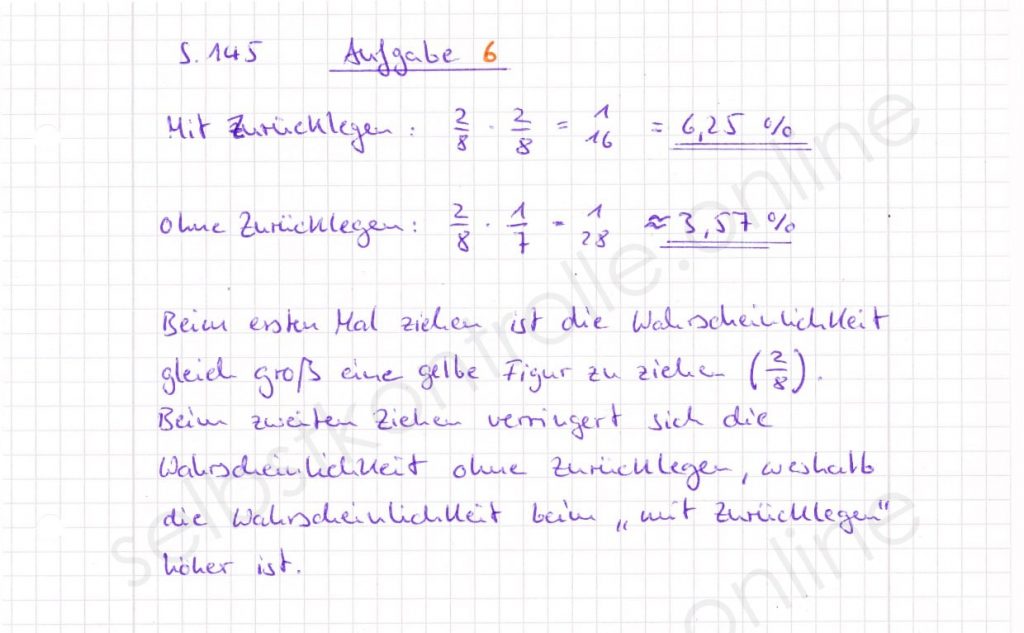 S. 145 Aufgabe 6
Mit Zurücklegen: 2/8 · 2/8 = 1/16 = 6,25 %
Ohne Zurücklegen: 2/8 · 1/7 = 1/28 ≈ 3,57 %
Beim ersten Mal ziehen ist die Wahrscheinlichkeit
gleich groß eine gelbe Figur zu ziehen (2/8).
Beim zweiten Ziehen verringert sich die
Wahrscheinlichkeit ohne Zurücklegen, weshalb
die Wahrscheinlichkeit beim „mit Zurücklegen"
höher ist.
selbstkontrolle.online
online